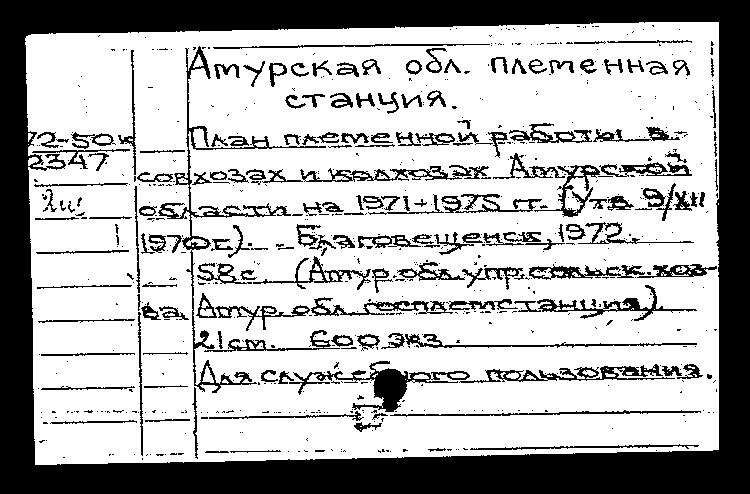 Амурская обл. племенная
станция.
72-50к План племенной работы в
2347 совхозах и колхозах Амурской
области на 1971-1975 гг. (Утв. 9/XII
1 1970г.). Благовещенск, 1972.
58 с. (Амур. обл. упр. сельск. хоз-
ва. Амур. обл. госплемстанция).
21 см. 600 экз.
Для служебного пользования.